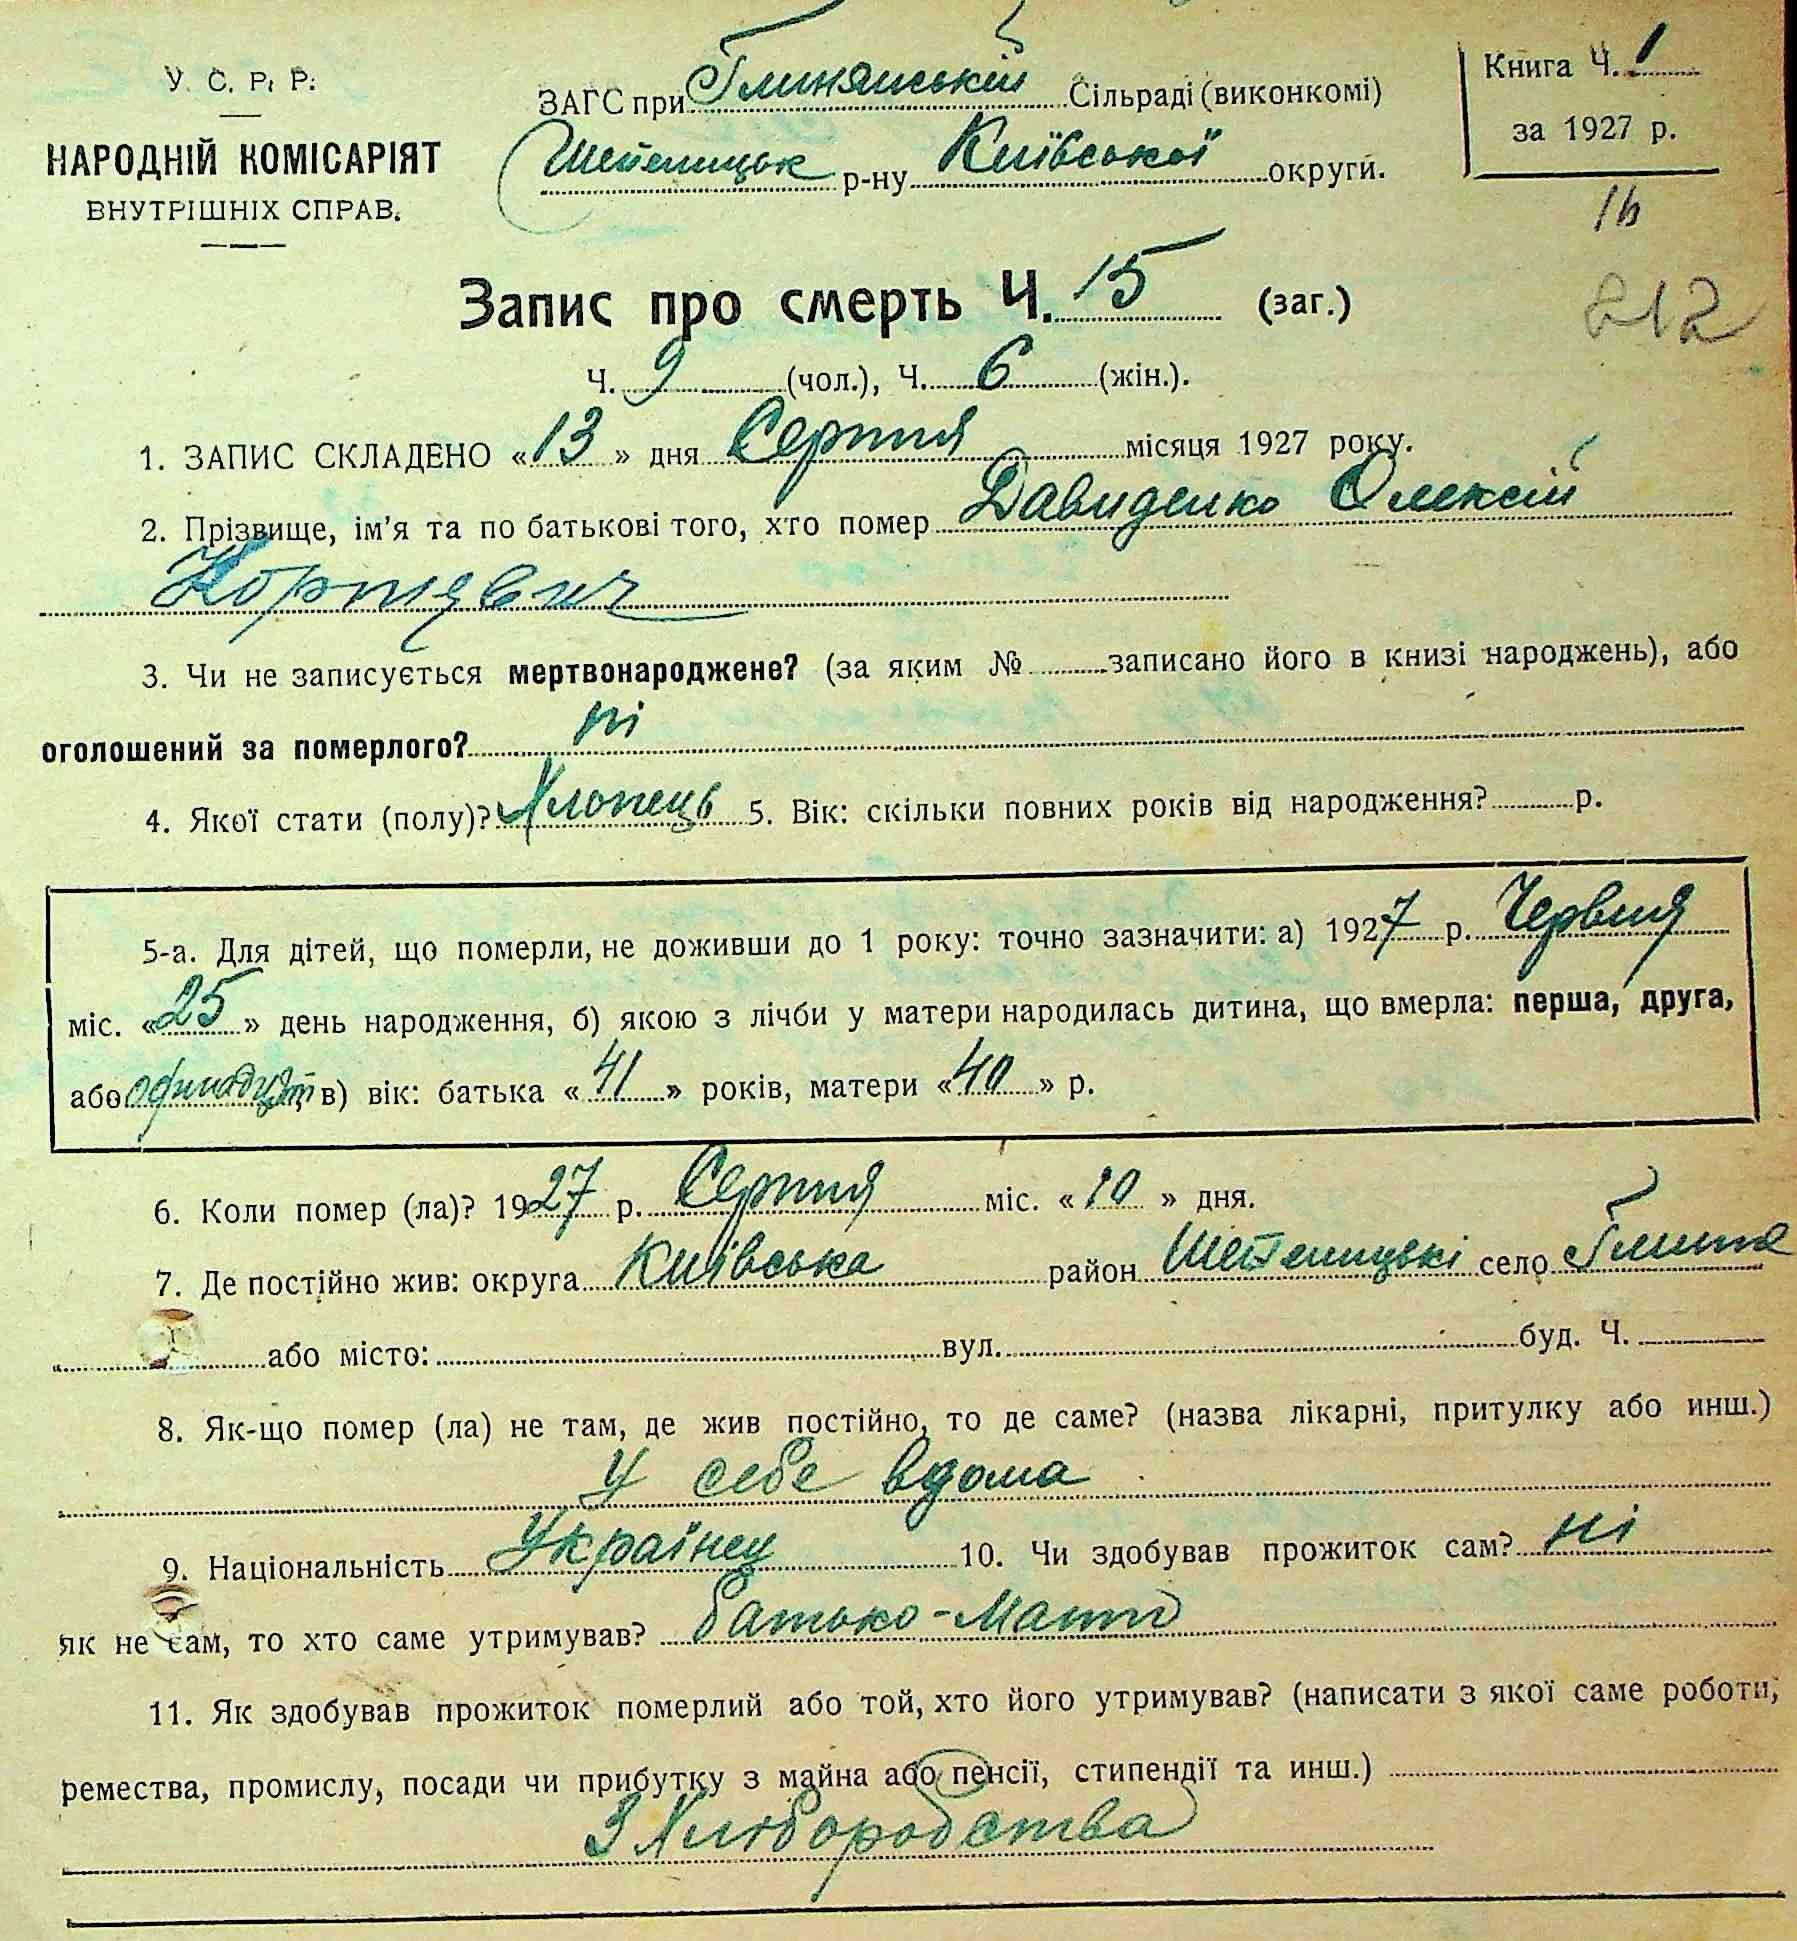 У. С. Р. Р.
НАРОДНІЙ КОМІСАРІЯТ
ВНУТРІШНІХ СПРАВ.
ЗАГС при Глинянській Сільраді (виконкомі)
Шепелицьк р-ну Київської округи.
Книга Ч. 1
за 1927 р.
16
212
Запис про смерть Ч. 15 (заг.)
Ч. 9 (чол.), Ч. 6 (жін.).
1. ЗАПИС СКЛАДЕНО «13» дня Серпня місяця 1927 року.
2. Прізвище, ім'я та по батькові того, хто помер Давиденко Олексій
3. Чи не записується мертвонароджене? (за яким № записано його в книзі народжень), або
оголошений за померлого? ні
4. Якої стати (полу)? Хлопець 5. Вік: скільки повних років від народження? р.
5-а. Для дітей, що померли, не доживши до 1 року: точно зазначити: а) 1927 р. Червня
міс. «25» день народження, б) якою з лічби у матери народилась дитина, що вмерла: перша, друга,
або в) вік: батька «41» років, матери «40» р.
6. Коли помер (ла)? 1927 р. Серпня міс. «10» дня.
7. Де постійно жив: округа Київська район Шепелицькі село Глинка
або місто: вул. буд. Ч.
8. Як-що помер (ла) не там, де жив постійно, то де саме? (назва лікарні, притулку або инш.)
У себе вдома
9. Національність Українец 10. Чи здобував прожиток сам? ні
як не сам, то хто саме утримував? батько-Мати
11. Як здобував прожиток померлий або той, хто його утримував? (написати з якої саме роботи,
ремества, промислу, посади чи прибутку з майна або пенсії, стипендії та инш.)
З Хліборобства